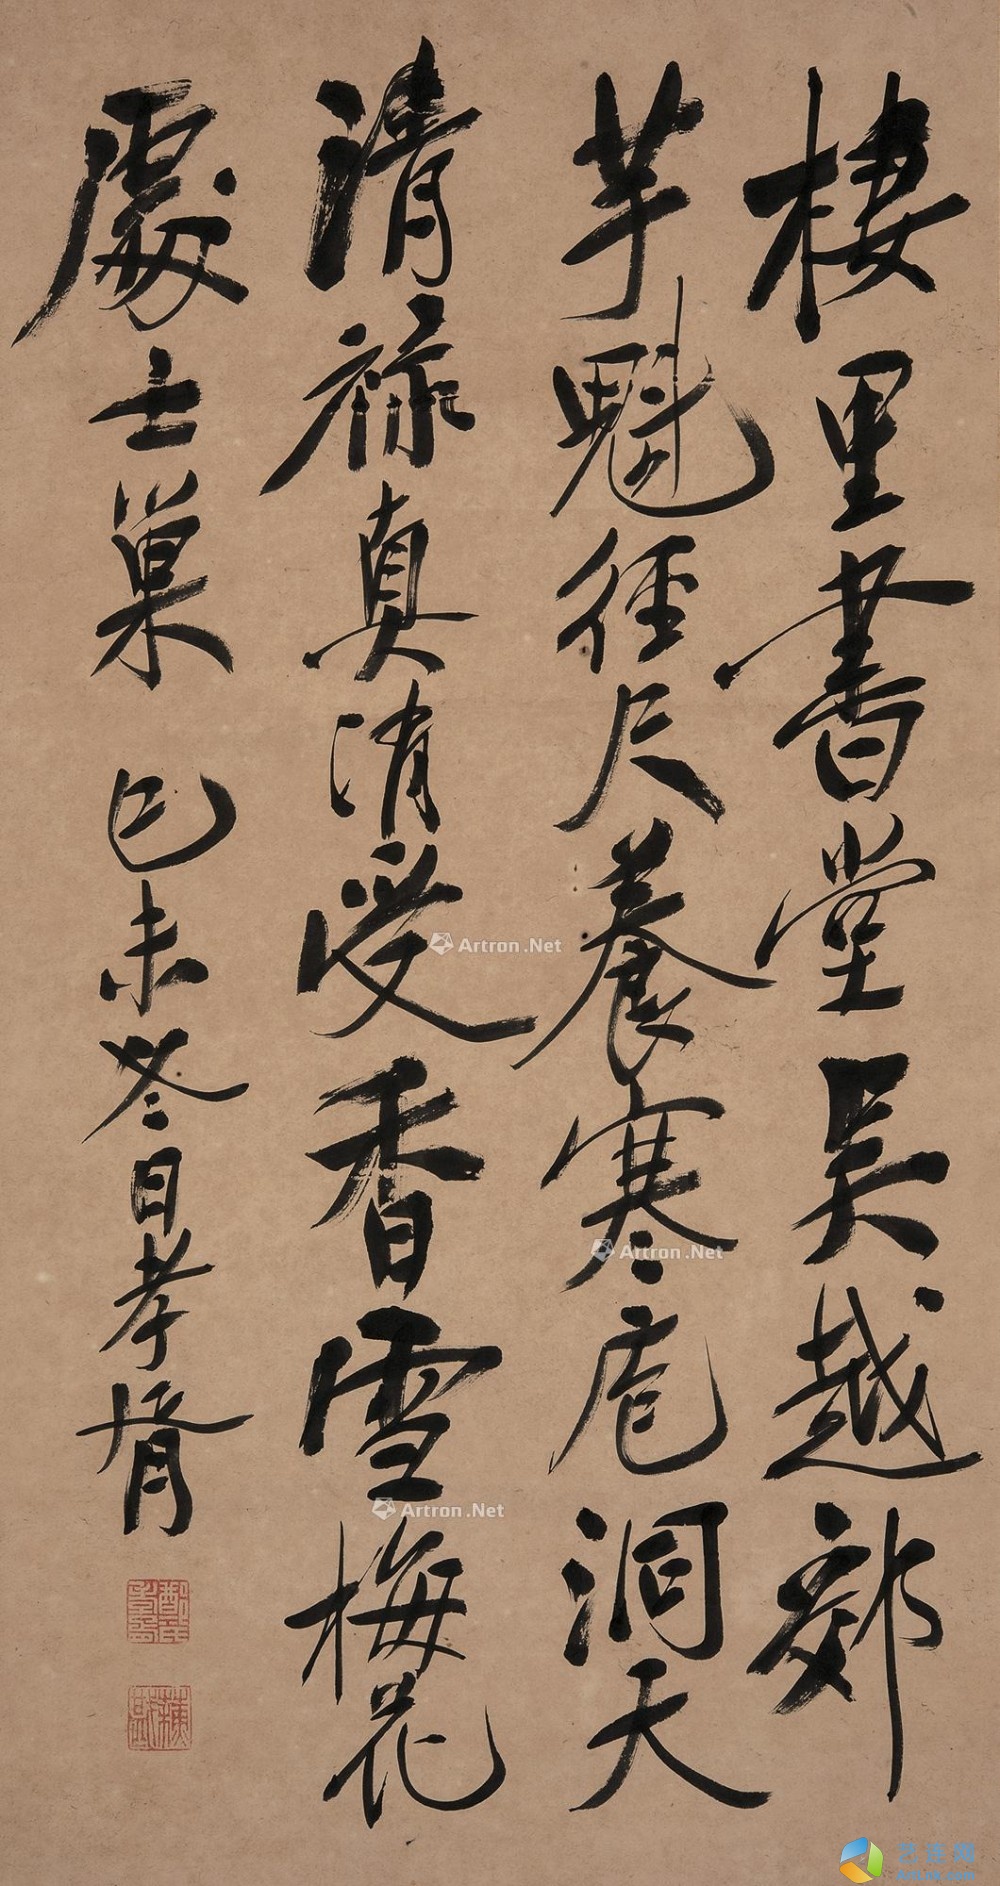 棲里書堂吳越郊
芋魁徑尺養寒庖洞天
清祿真消受香雪梅花
處士巢 己未冬日孝胥
Artron.Net
Artron.Net
Artron.Net